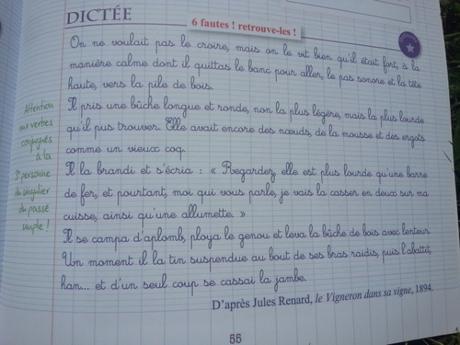 DICTÉE
6 fautes ! retrouve-les !
On ne voulait pas le croire, mais on le vit bien qu'il était fort, à la
manière calme dont il quittas le banc pour aller, le pas sonore et la tête
haute, vers la pile de bois.
Il pris une bûche longue et ronde, non la plus légère, mais la plus lourde
qu'il pus trouver. Elle avait encore des nœuds, de la mousse et des ergots
comme un vieux coq.
Il la brandi et s'écria : « Regardez, elle est plus lourde qu'une barre
de fer, et pourtant, moi qui vous parle, je vais la casser en deux sur ma
cuisse, ainsi qu'une allumette. »
Il se campa d'aplomb, ploya le genou et leva la bûche de bois avec lenteur.
Un moment il la tin suspendue au bout de ses bras raidis, puis l'abattit,
han... et d'un seul coup se cassai la jambe.
D'après Jules Renard, le Vigneron dans sa vigne, 1894.
Attention
aux verbes
conjugués
à la
3e personne
du singulier
du passé
simple !
55